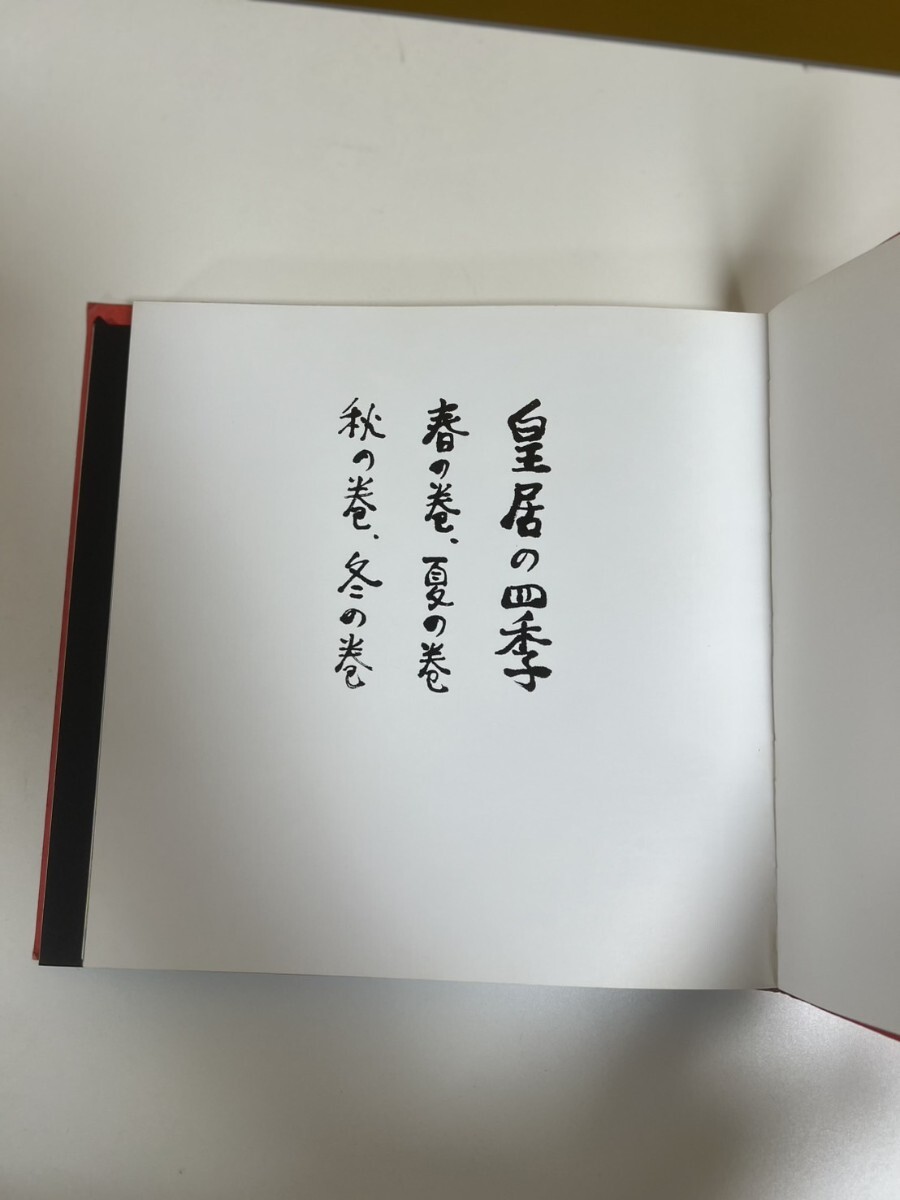 皇居の四季
春の巻、夏の巻
秋の巻、冬の巻